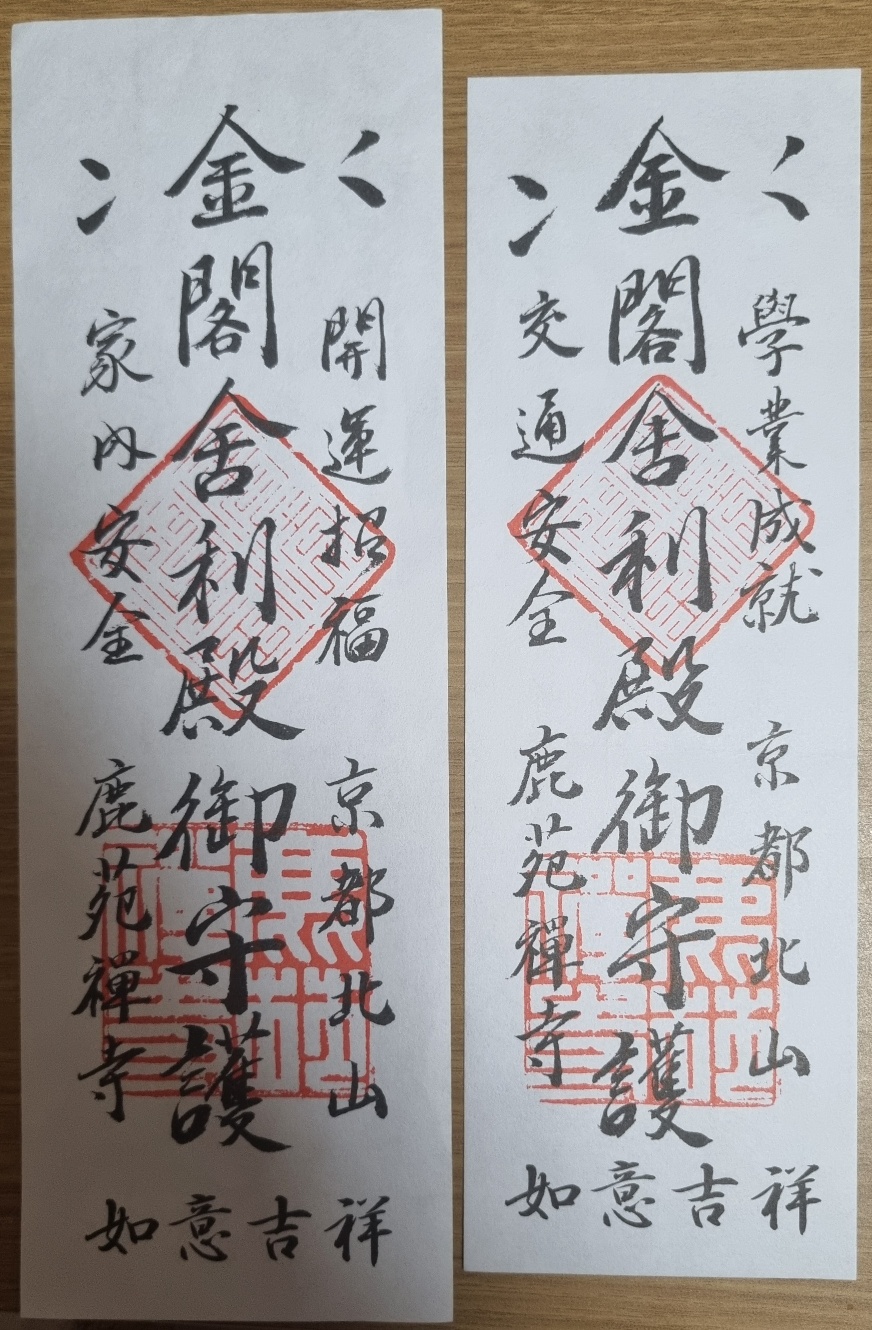 金閣舎利殿御守護
開運招福
家内安全
京都北山
鹿苑禅寺
如意吉祥
金閣舎利殿御守護
學業成就
交通安全
京都北山
鹿苑禅寺
如意吉祥